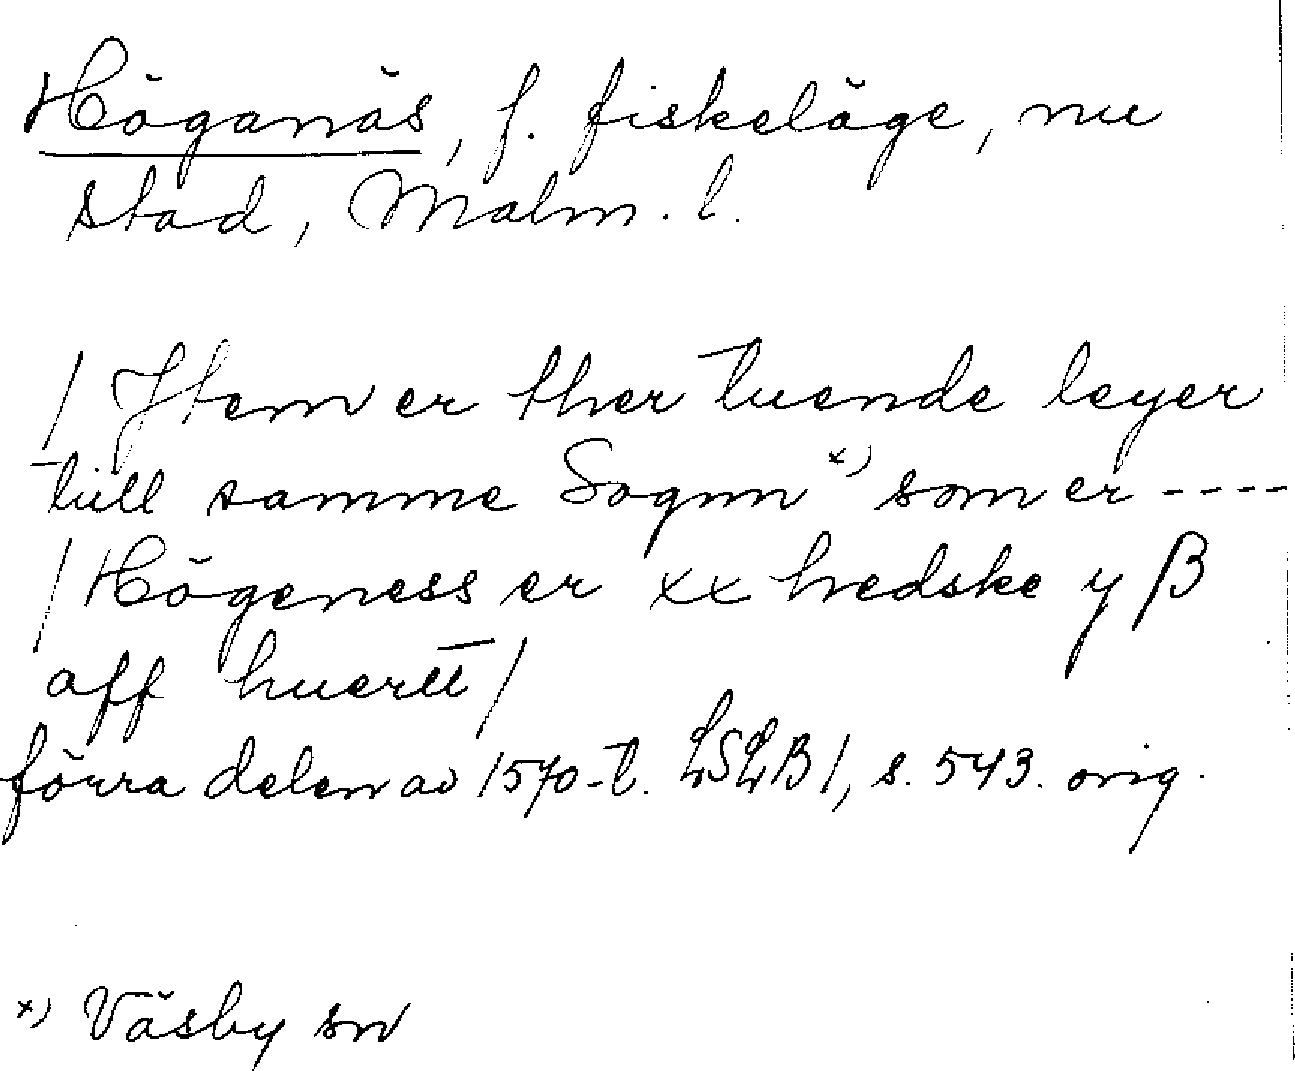 Höganäs, f. fiskeläge, nu
stad, Malm. l.
/ Jtem er ther tuende leyer
till samme Sognn x) som er ----
/ Högeness er xx hedske y β
aff huertt /
förra delen av 1570-t. LSLB 1, s. 543. orig.
x) Väsby sn